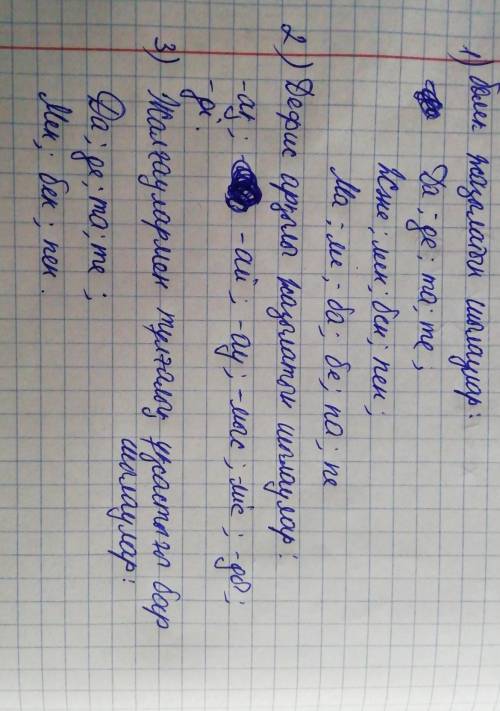 1) бөлек жазылатын шылаулар:
Да; де; та; те;
Және; мен; бен; пен;
Ма; ме; ба; бе; па; пе
2) Дефис арқылы жазылатын шылаулар:
-ау; -ай; -ау; -мыс; -міс; -ды;
-ді.
3) Жалғаулармен тұлғалық ұқсастығы бар
шылаулар:
Да; де; та; те;
Мен; бен; пен.